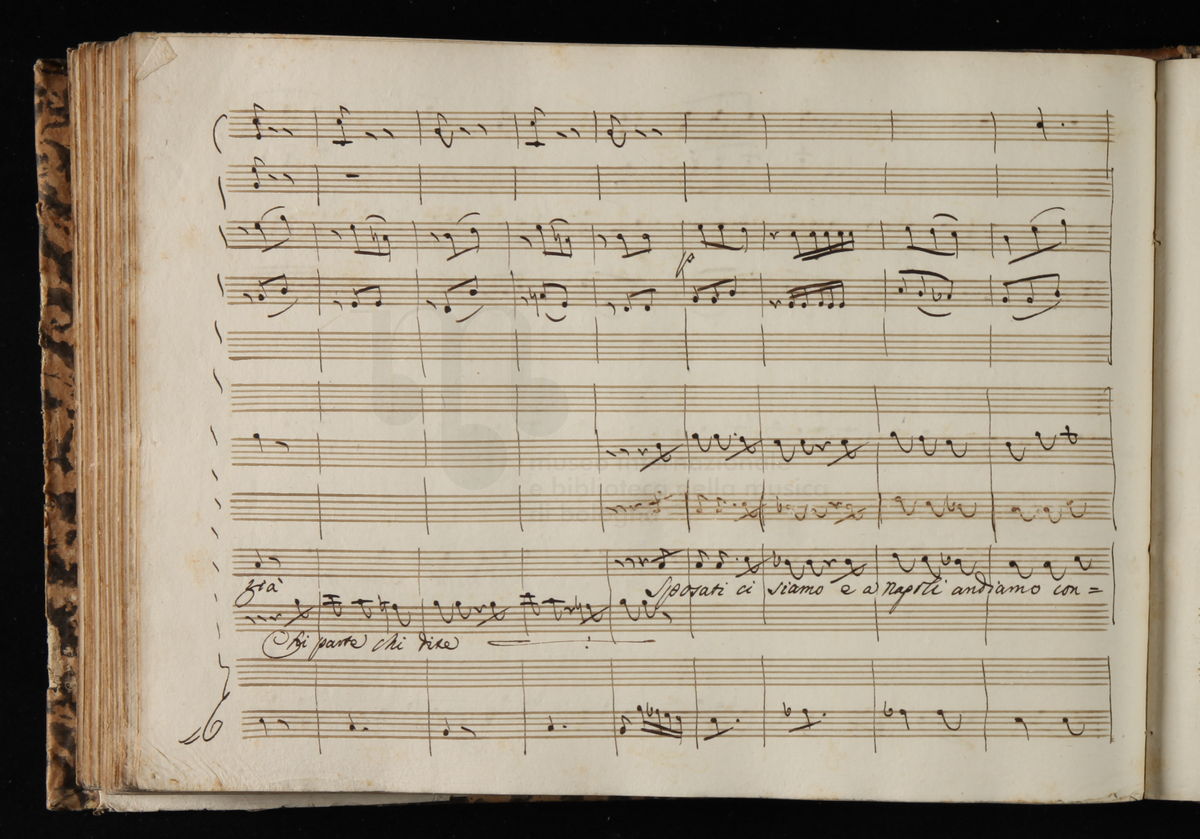 p
museo internazionale
e biblioteca della musica
di bologna
già Sposati ci siamo e a Napoli andiamo con=
Chi parte chi dite